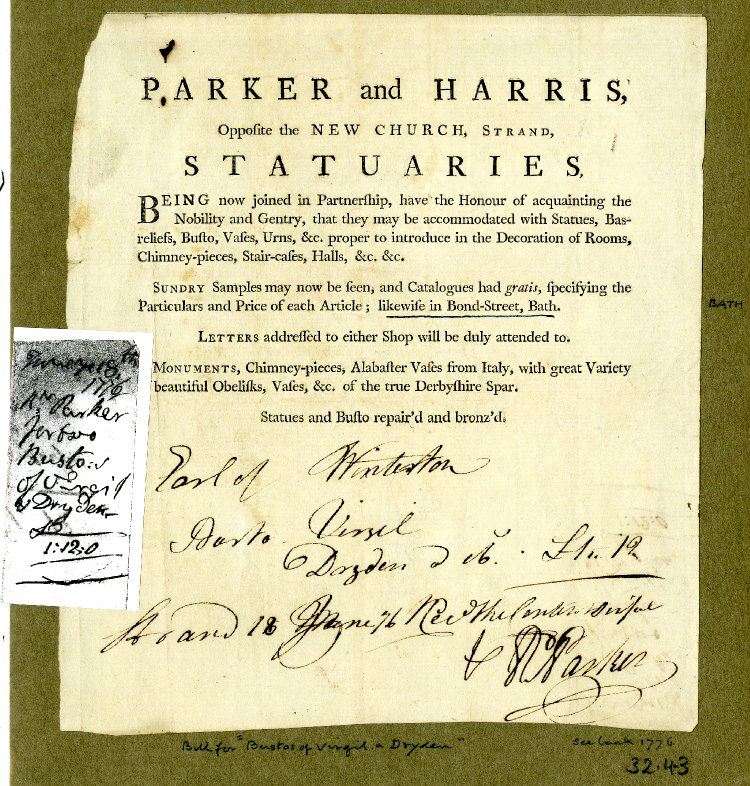 PARKER and HARRIS,
Oppoſite the NEW CHURCH, STRAND,
STATUARIES,
BEING now joined in Partnerſhip, have the Honour of acquainting the
Nobility and Gentry, that they may be accommodated with Statues, Bas-
reliefs, Buſto, Vaſes, Urns, &c. proper to introduce in the Decoration of Rooms,
Chimney-pieces, Stair-caſes, Halls, &c. &c.
SUNDRY Samples may now be ſeen, and Catalogues had gratis, ſpecifying the
Particulars and Price of each Article; likewiſe in Bond-Street, Bath.
BATH
LETTERS addreſſed to either Shop will be duly attended to.
MONUMENTS, Chimney-pieces, Alabaſter Vaſes from Italy, with great Variety
beautiful Obeliſks, Vaſes, &c. of the true Derbyſhire Spar.
Statues and Buſto repair'd and bronz'd.
1776
Mr Parker
for two
Bustos
of Virgil
& Dryden
1:12:0
Earl of Winterton
Busto Virgil
Dryden £1.. 12
Strand 18 June 76 Recd the Contents
Rd Parker
Bill for "Bustos of Virgil & Dryden"
see back 1776
32.43